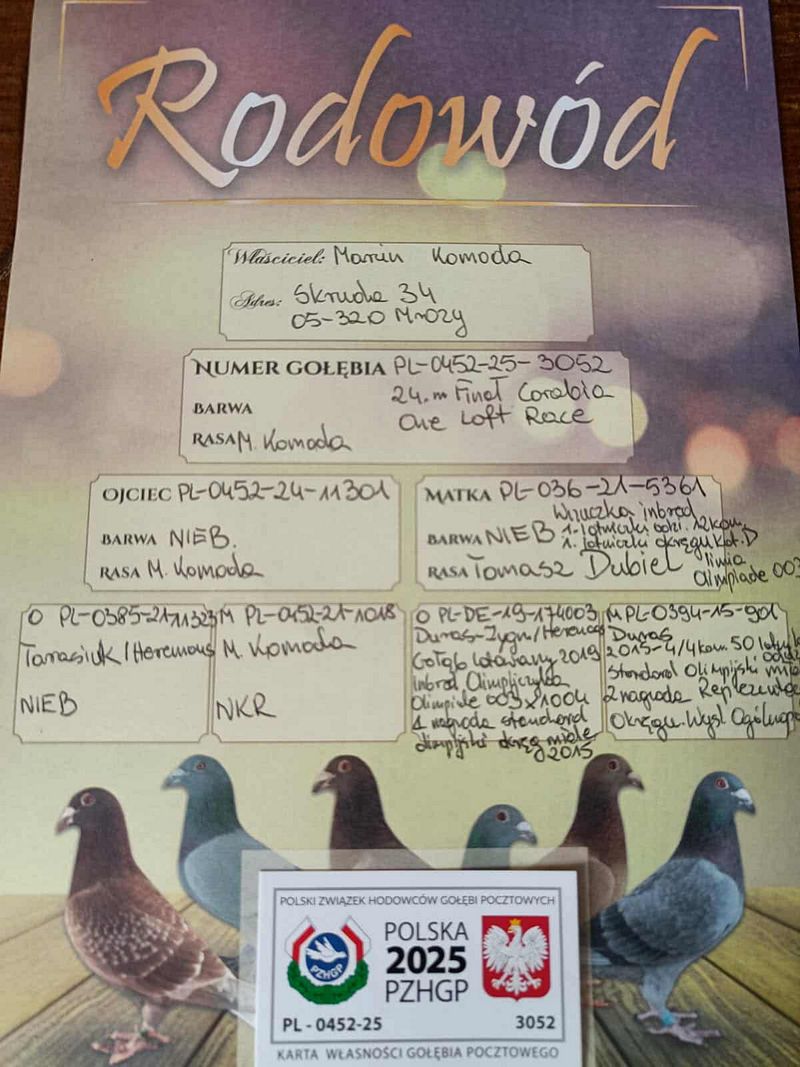 Rodowód
Właściciel: Marcin Komoda
Adres: Skruda 34
05-320 Mrozy
NUMER GOŁĘBIA PL-0452-25-3052
24.m Finał Corabia
BARWA
One Loft Race
RASA M. Komoda
OJCIEC PL-0452-24-11301
BARWA NIEB.
RASA M. Komoda
MATKA PL-036-21-5361
Wnuczka inbred
BARWA NIEB 1-lotniczki oddz. 12kon,
1. lotniczki okręgu kat. D
RASA Tomasz Dubiel linia
Olimpiade 003
O PL-0385-21-11323
Tarasiuk/Heremans
NIEB
M PL-0452-21-1018
M. Komoda
NKR
O PL-DE-19-174003
Duras-Zygm/Heremans
Gołąb lotowany 2019
inbred Olimpijczyka
Olimpiade 003x1004
1 nagroda standard
olimpijski okręg
2015
M PL-0394-15-901
Duras
2015-4/4kon. 50 lotniczka
Standard Olimpijski
2 nagroda
Okręgu. Wyst
POLSKI ZWIĄZEK HODOWCÓW GOŁĘBI POCZTOWYCH
PZHGP
POLSKA
2025
PZHGP
PL - 0452-25 3052
KARTA WŁASNOŚCI GOŁĘBIA POCZTOWEGO